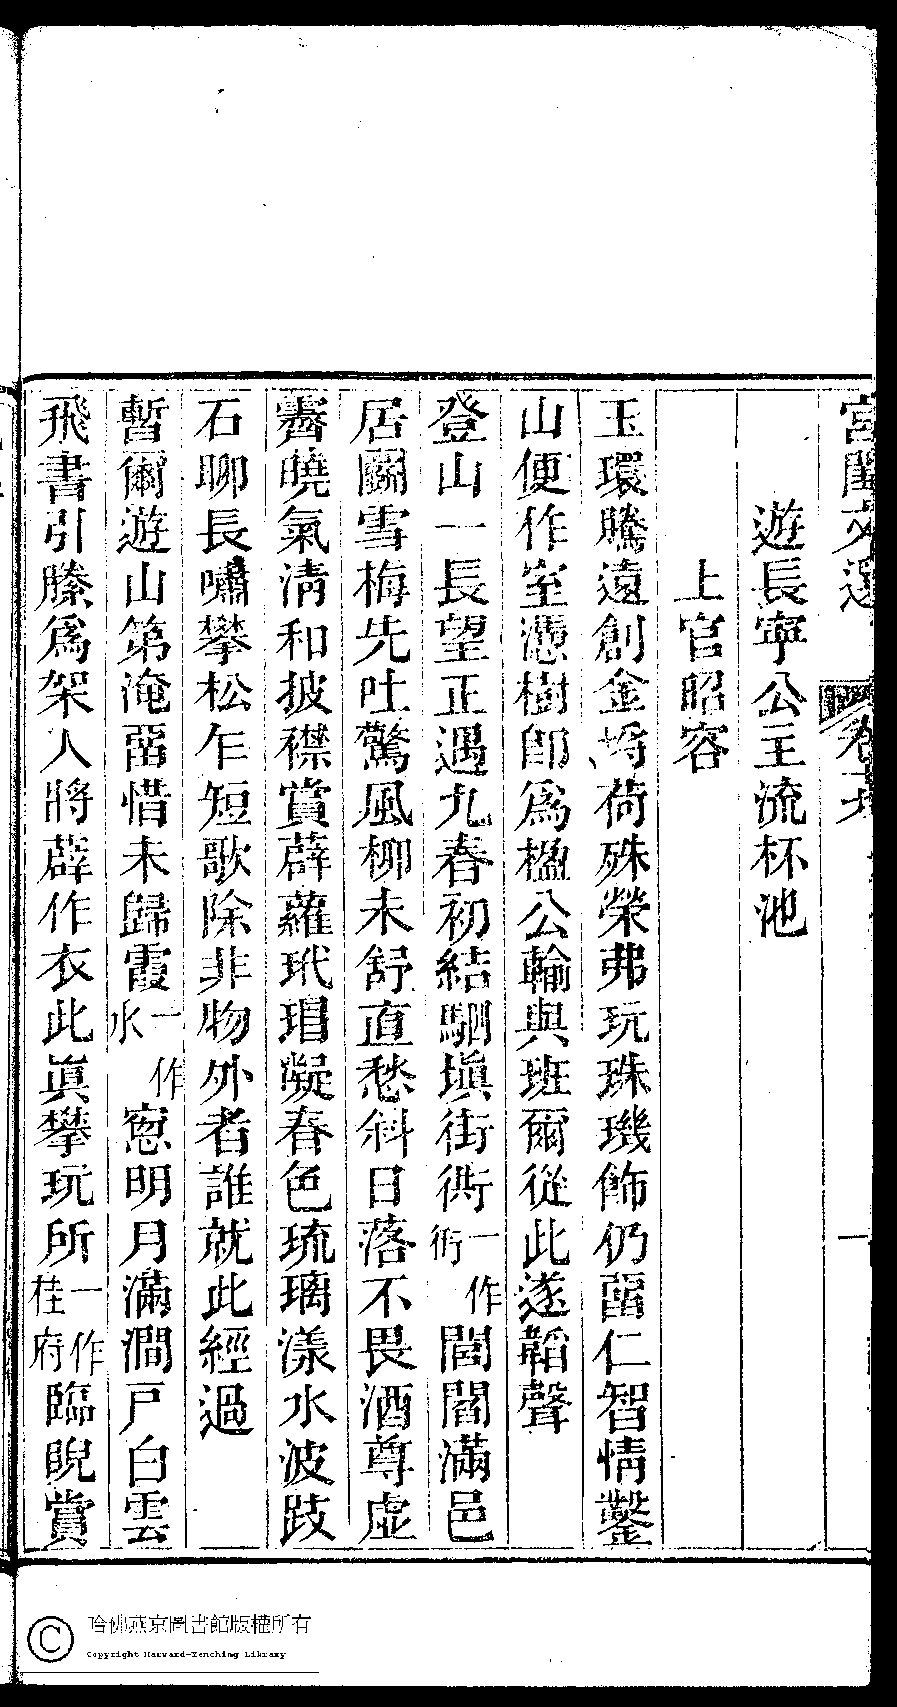 宮閨文選 卷 一
遊長寧公主流杯池
上官昭容
玉環騰遠創金埒荷殊榮弗玩珠璣飾仍畱仁智情鑿
山便作室憑樹卽爲楹公輸與班爾從此遂韜聲
登山一長望正遇九春初結駟塡街衖一作衖閭閻滿邑
居鬭雪梅先吐驚風柳未舒直愁斜日落不畏酒尊虛
霽曉氣淸和披襟賞薜蘿玳瑁凝春色琉璃漾水波跂
石聊長嘯攀松乍短歌除非物外者誰就此經過
暫爾遊山第淹畱惜未歸霞一作水窻明月滿澗戸白雲
飛書引藤爲架人將薜作衣此眞攀玩所一作桂府臨睨賞
哈佛燕京圖書館版權所有
Copyright Harvard-Yenching Library